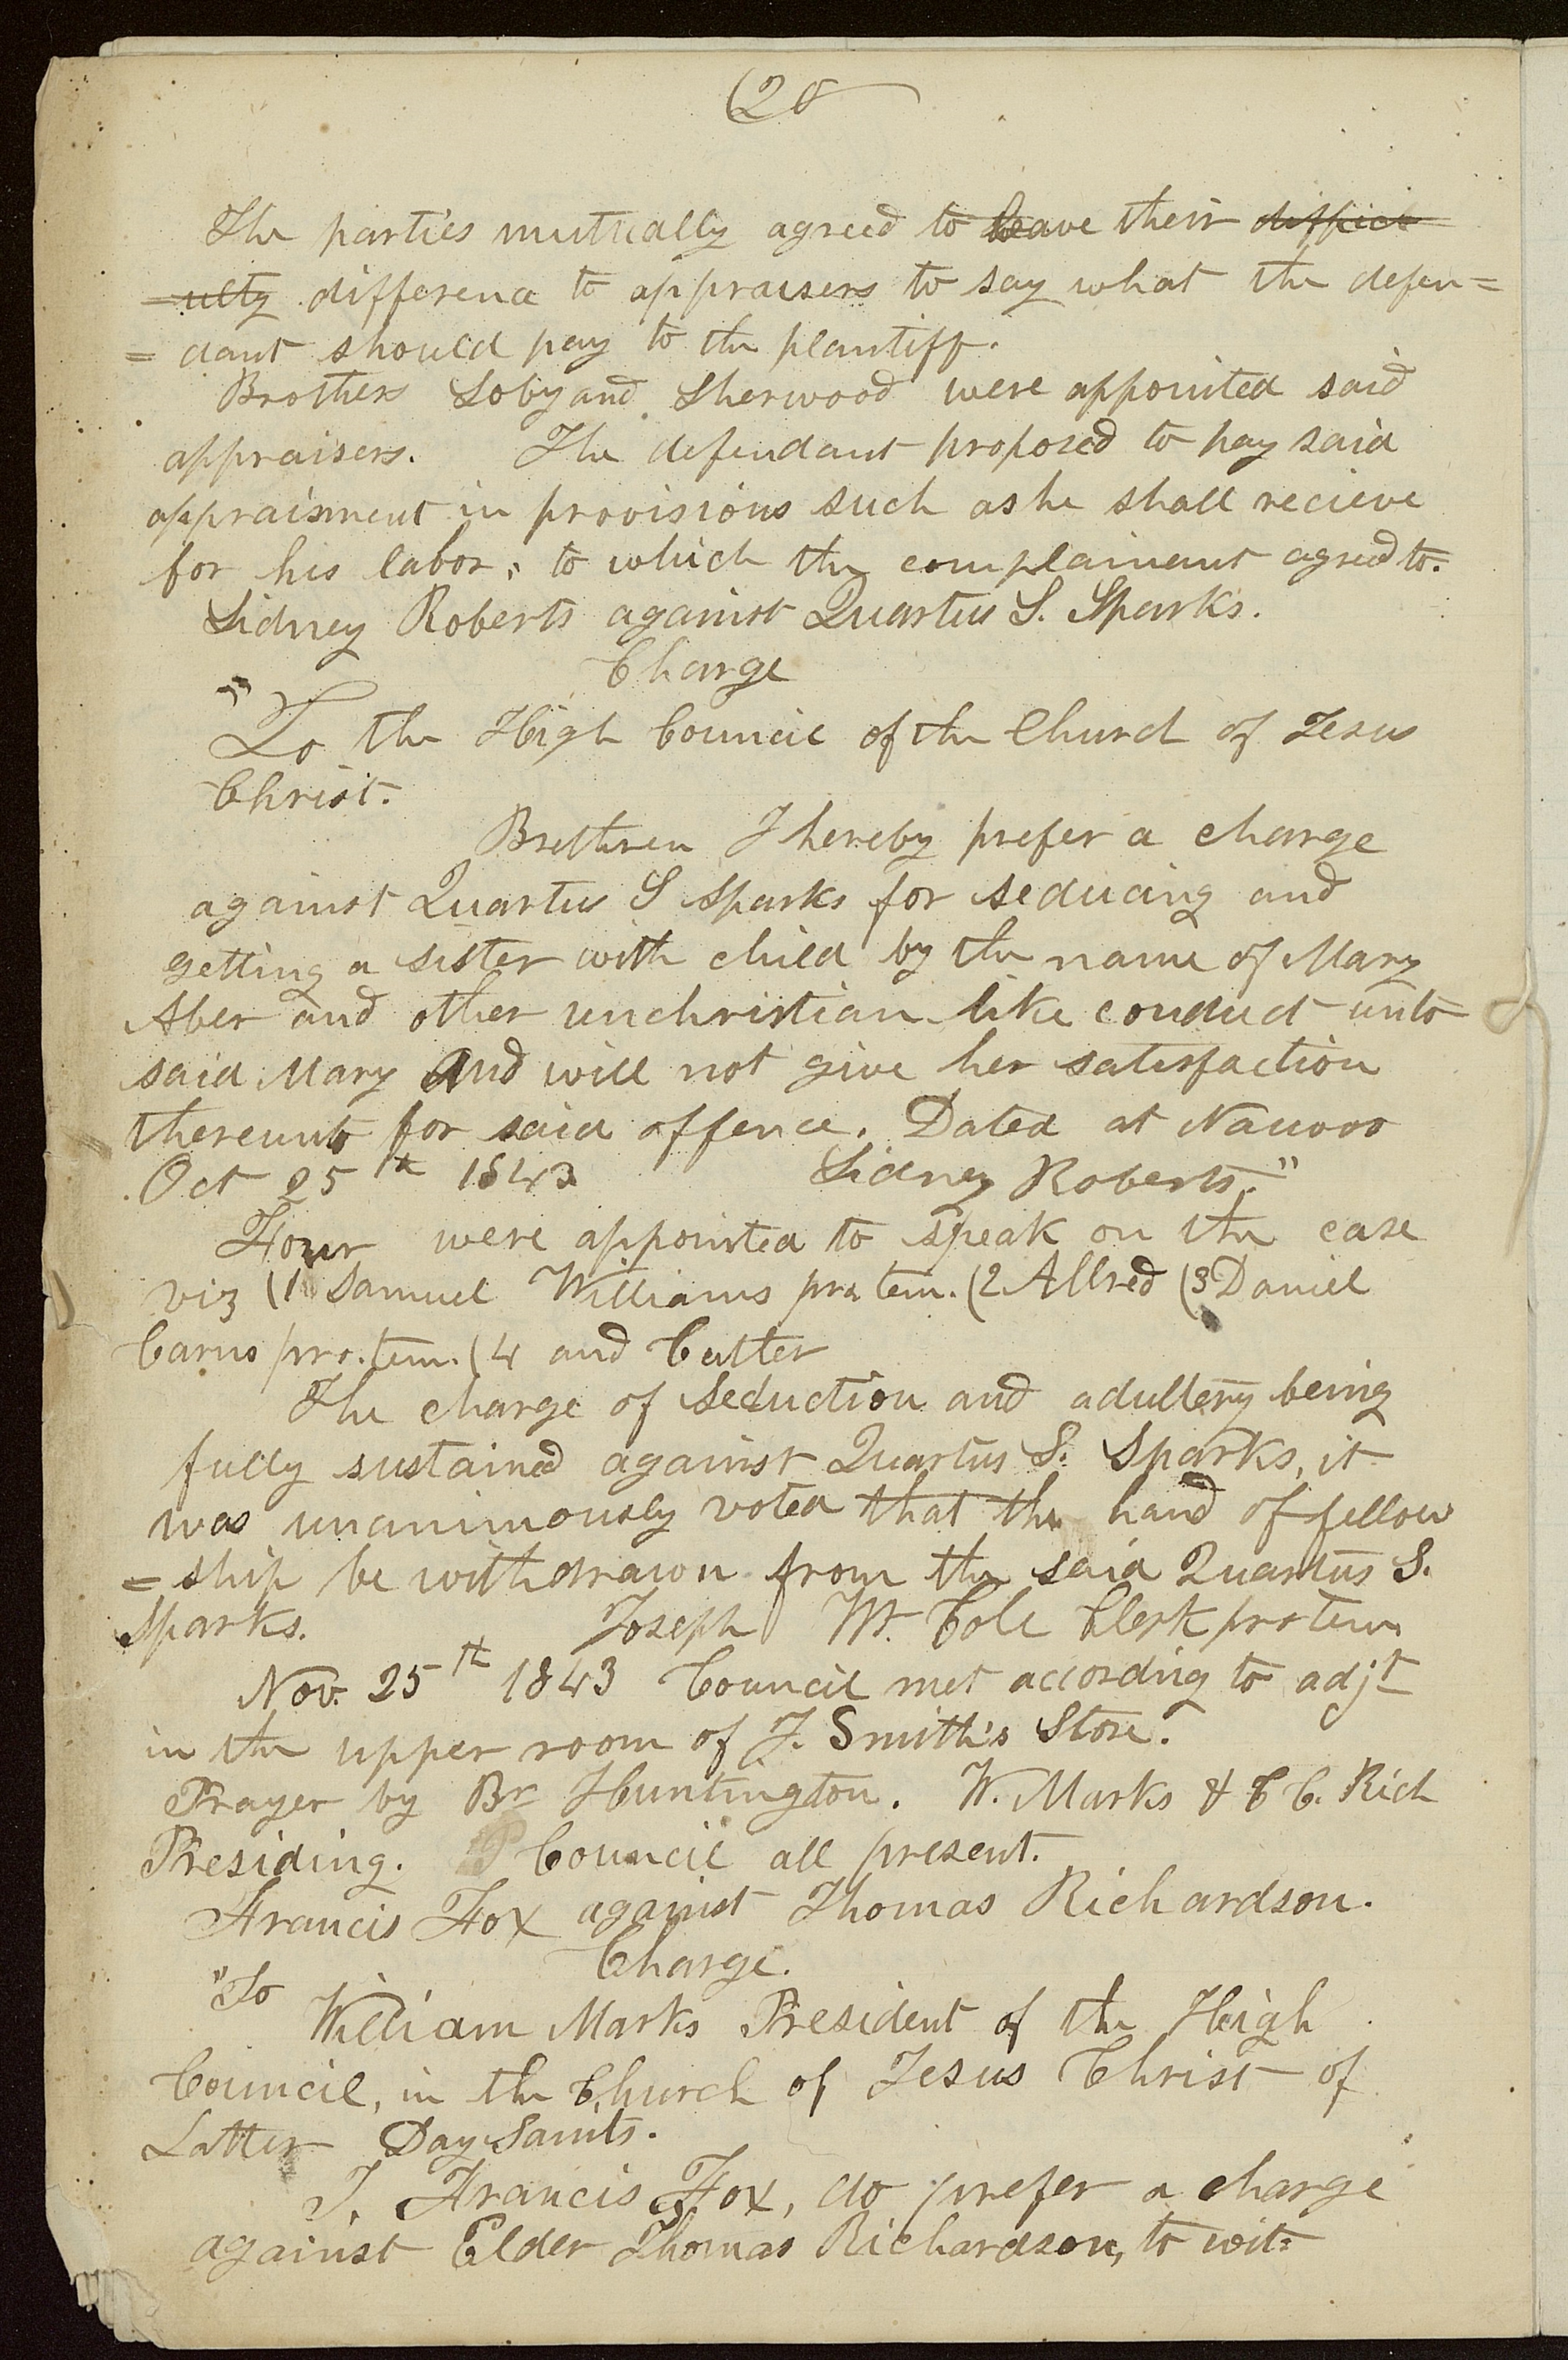 (28
The parties mutually agreed to leave their diffict
=ulty difference to appraisers to say what the defen=
=dant should pay to the plantiff.
Brothers Soby and Sherwood were appointed said
appraisers. The defendant proposed to pay said
appraisment in provisions such as he shall recieve
for his labor; to which the complainant agreed to.
Sidney Roberts against Quartus S. Sparks.
Charge
"To the High Council of the Church of Jesus
Christ.
Brethren I hereby prefer a charge
against Quartus S Sparks for seducing and
getting a sister with child by the name of Mary
Aber and other unchristian like conduct unto
said Mary And will not give her satisfaction
thereunto for said offence. Dated at Nauvoo
Oct 25th 1843 Sidney Roberts."
Four were appointed to speak on the case
viz (1 Samuel Williams pro tem. (2 Allred (3 Daniel
Carns pro. tem. (4 and Cutler
The charge of Seduction and adultery being
fully sustained against Quartus S. Sparks, it
was unanimously voted that the hand of fellow
=ship be withdrawn from the said Quartus S.
Sparks. Joseph M. Cole Clerk pro tem
Nov. 25th 1843 Council met according to adjt
in the upper room of J. Smith's Store.
Prayer by Br Huntington. W. Marks & C C. Rich
Presiding. Council all present.
Francis Fox against Thomas Richardson.
Charge.
"To
William Marks President of the High
Council, in the Church of Jesus Christ of
Latter Day Saints.
I, Francis Fox, do prefer a charge
against Elder Thomas Richardson, to wit: